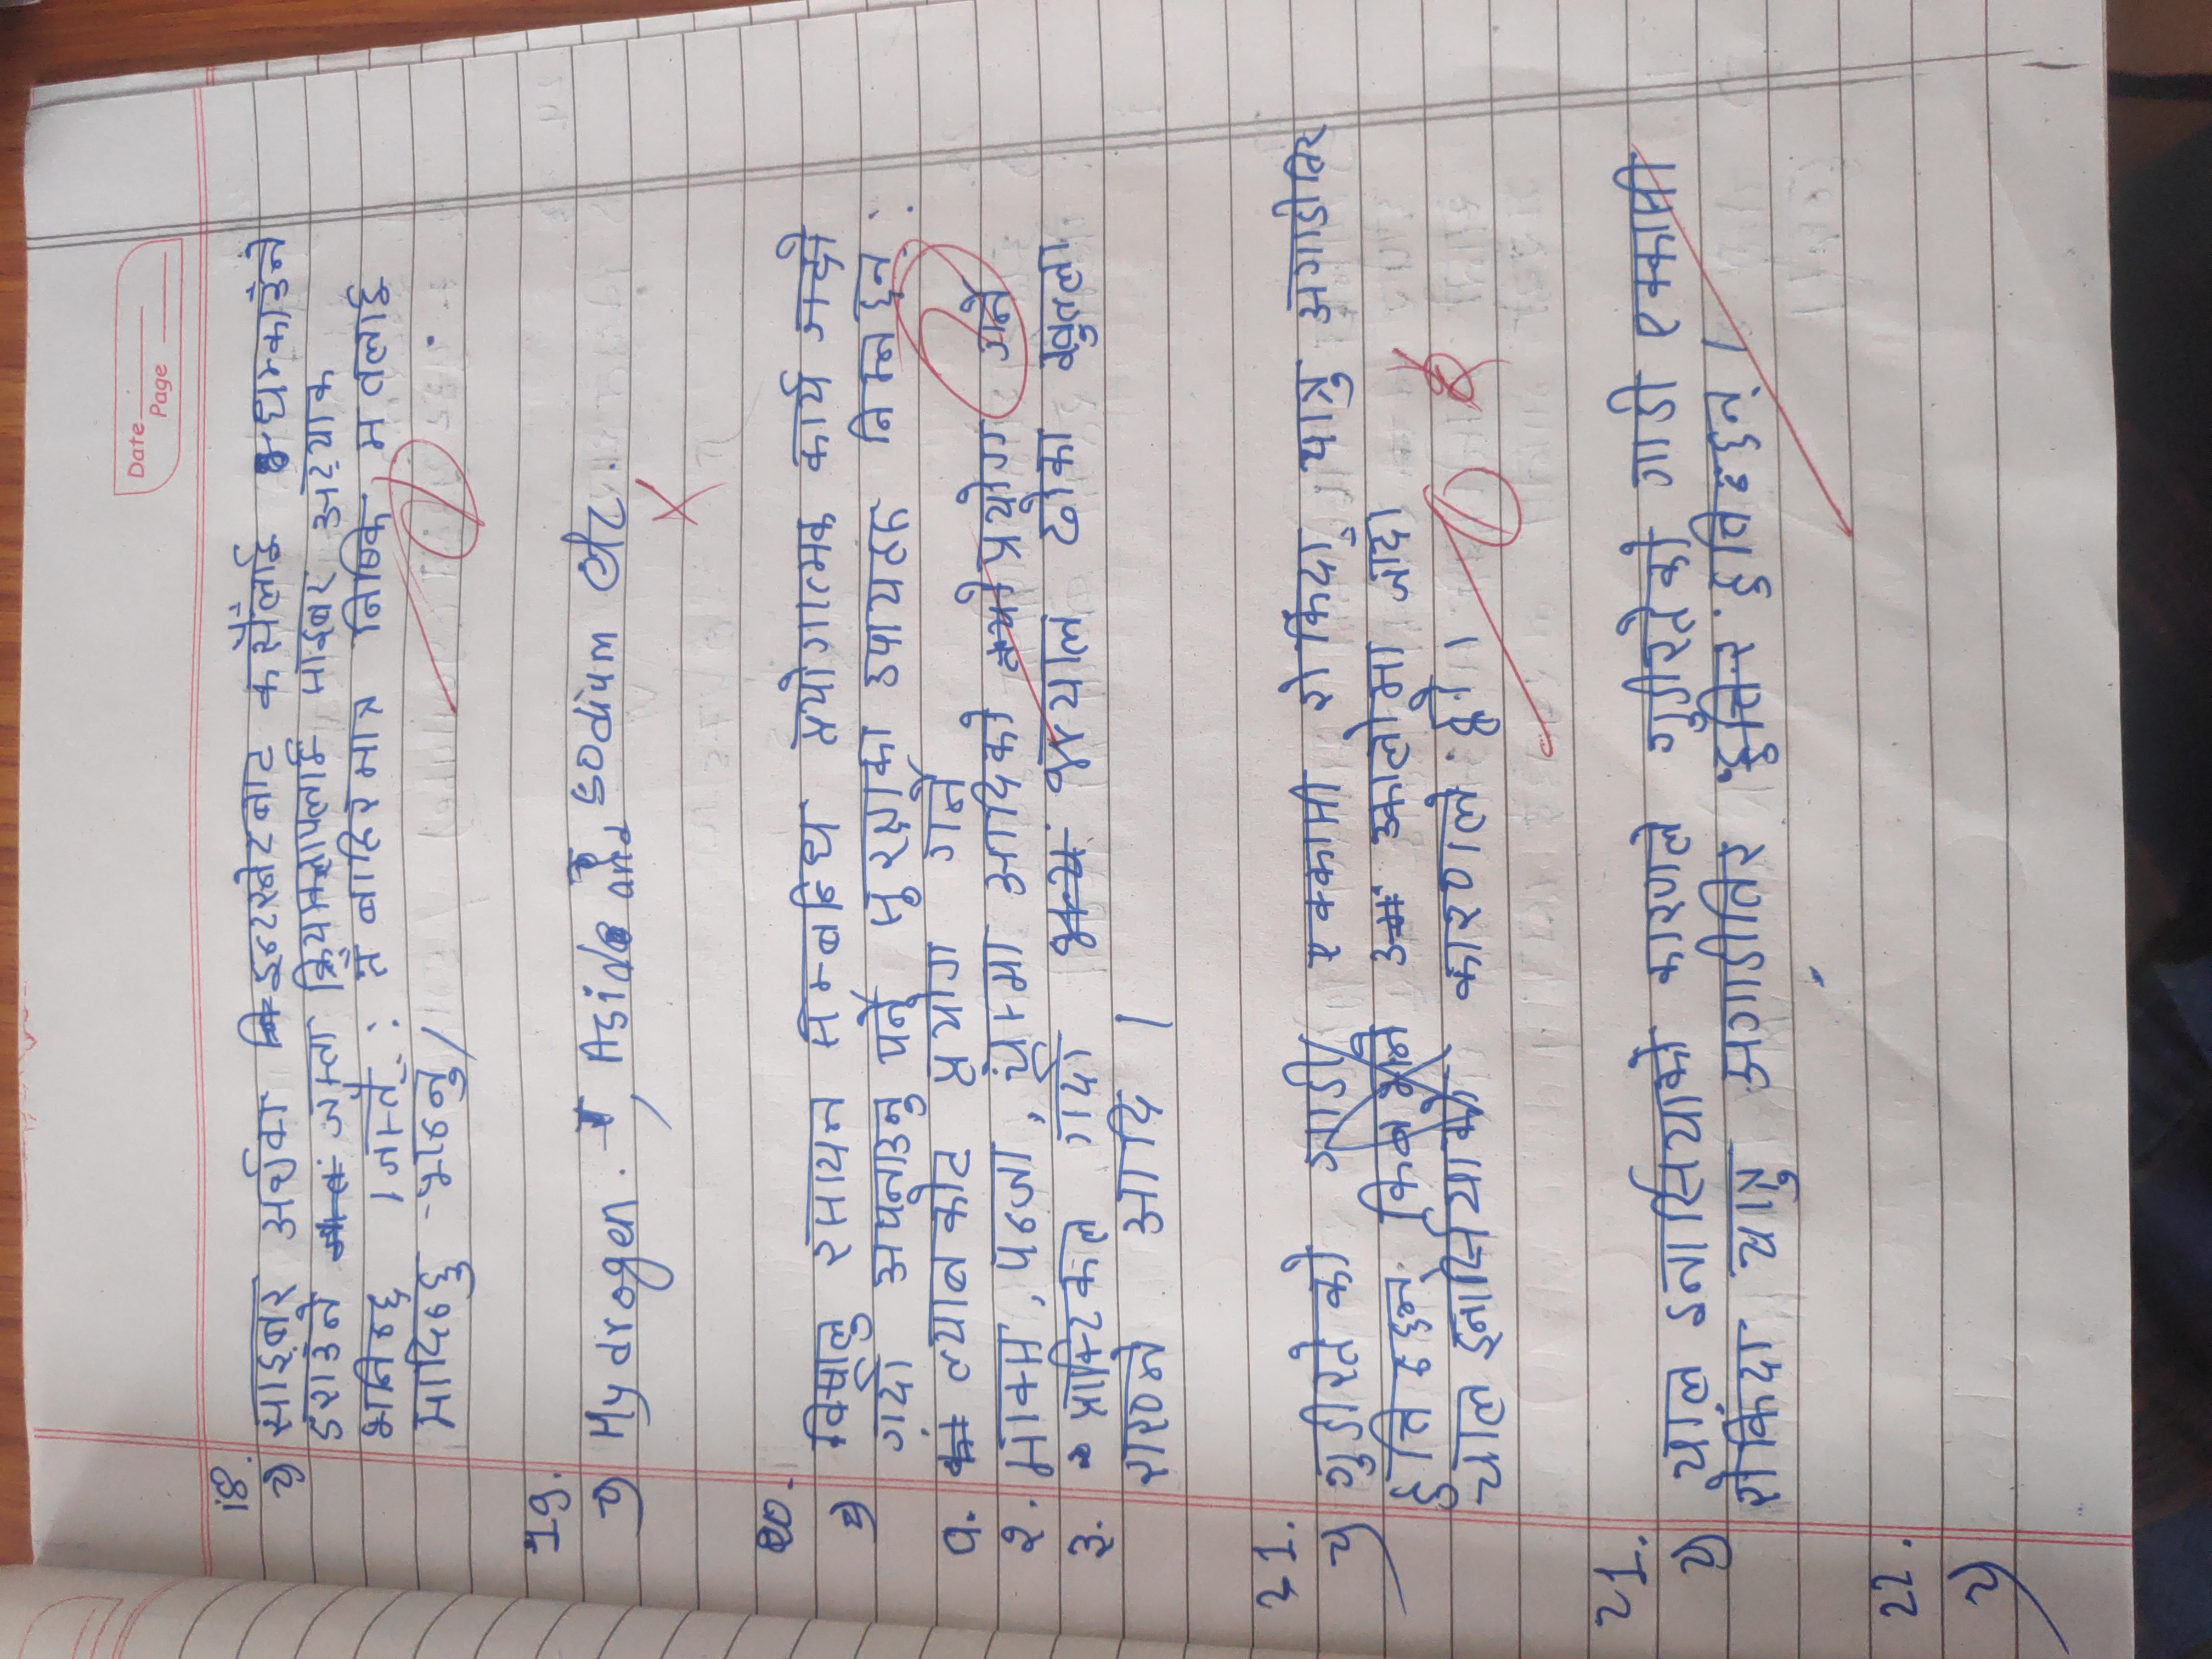 Date
Page
18.
साइबर अर्थवा इन्टरनेटबाट कसैँलाई धम्काउँने
डराउँने जस्ता क्रियाकलापलाई साइबर अट्याक
भनिन्छ । जस्तै : तँ बाहिर मात्र निष्कि, म तलाई
मादिन्छु भन्नु ।
19.
Hydrogen. , Aside and sodium etc.
20.
विषालु रसायन सम्बन्धि प्रयोगात्मक कार्य
गर्दा अपनाउनु पर्ने सुरक्षाका उपायहरू निम्न छन् :
१. ल्याब कोट प्रयोग गर्ने
२. मास्क, पन्जा, चस्मा आदिको प्रयोग गर्ने
३. प्राक्टिकल गर्दा भ्mयाल ढोका खुल्ला
राख्ने आदि ।
21.
गुडीरहेको गाडी एक्कासी रोकिँदा यात्रु अगाडीतिर
हुत्तिन्छन् किनभने उकालोमा जाँदा
चाल इनर्सियाको कारणले हो ।
1
21.
चाल इनर्सियाको कारणले गुडीरहेको गाडी एक्कासी
रोकिँदा यात्रु अगाडीतिर हुत्तिन्छन् ।
22.